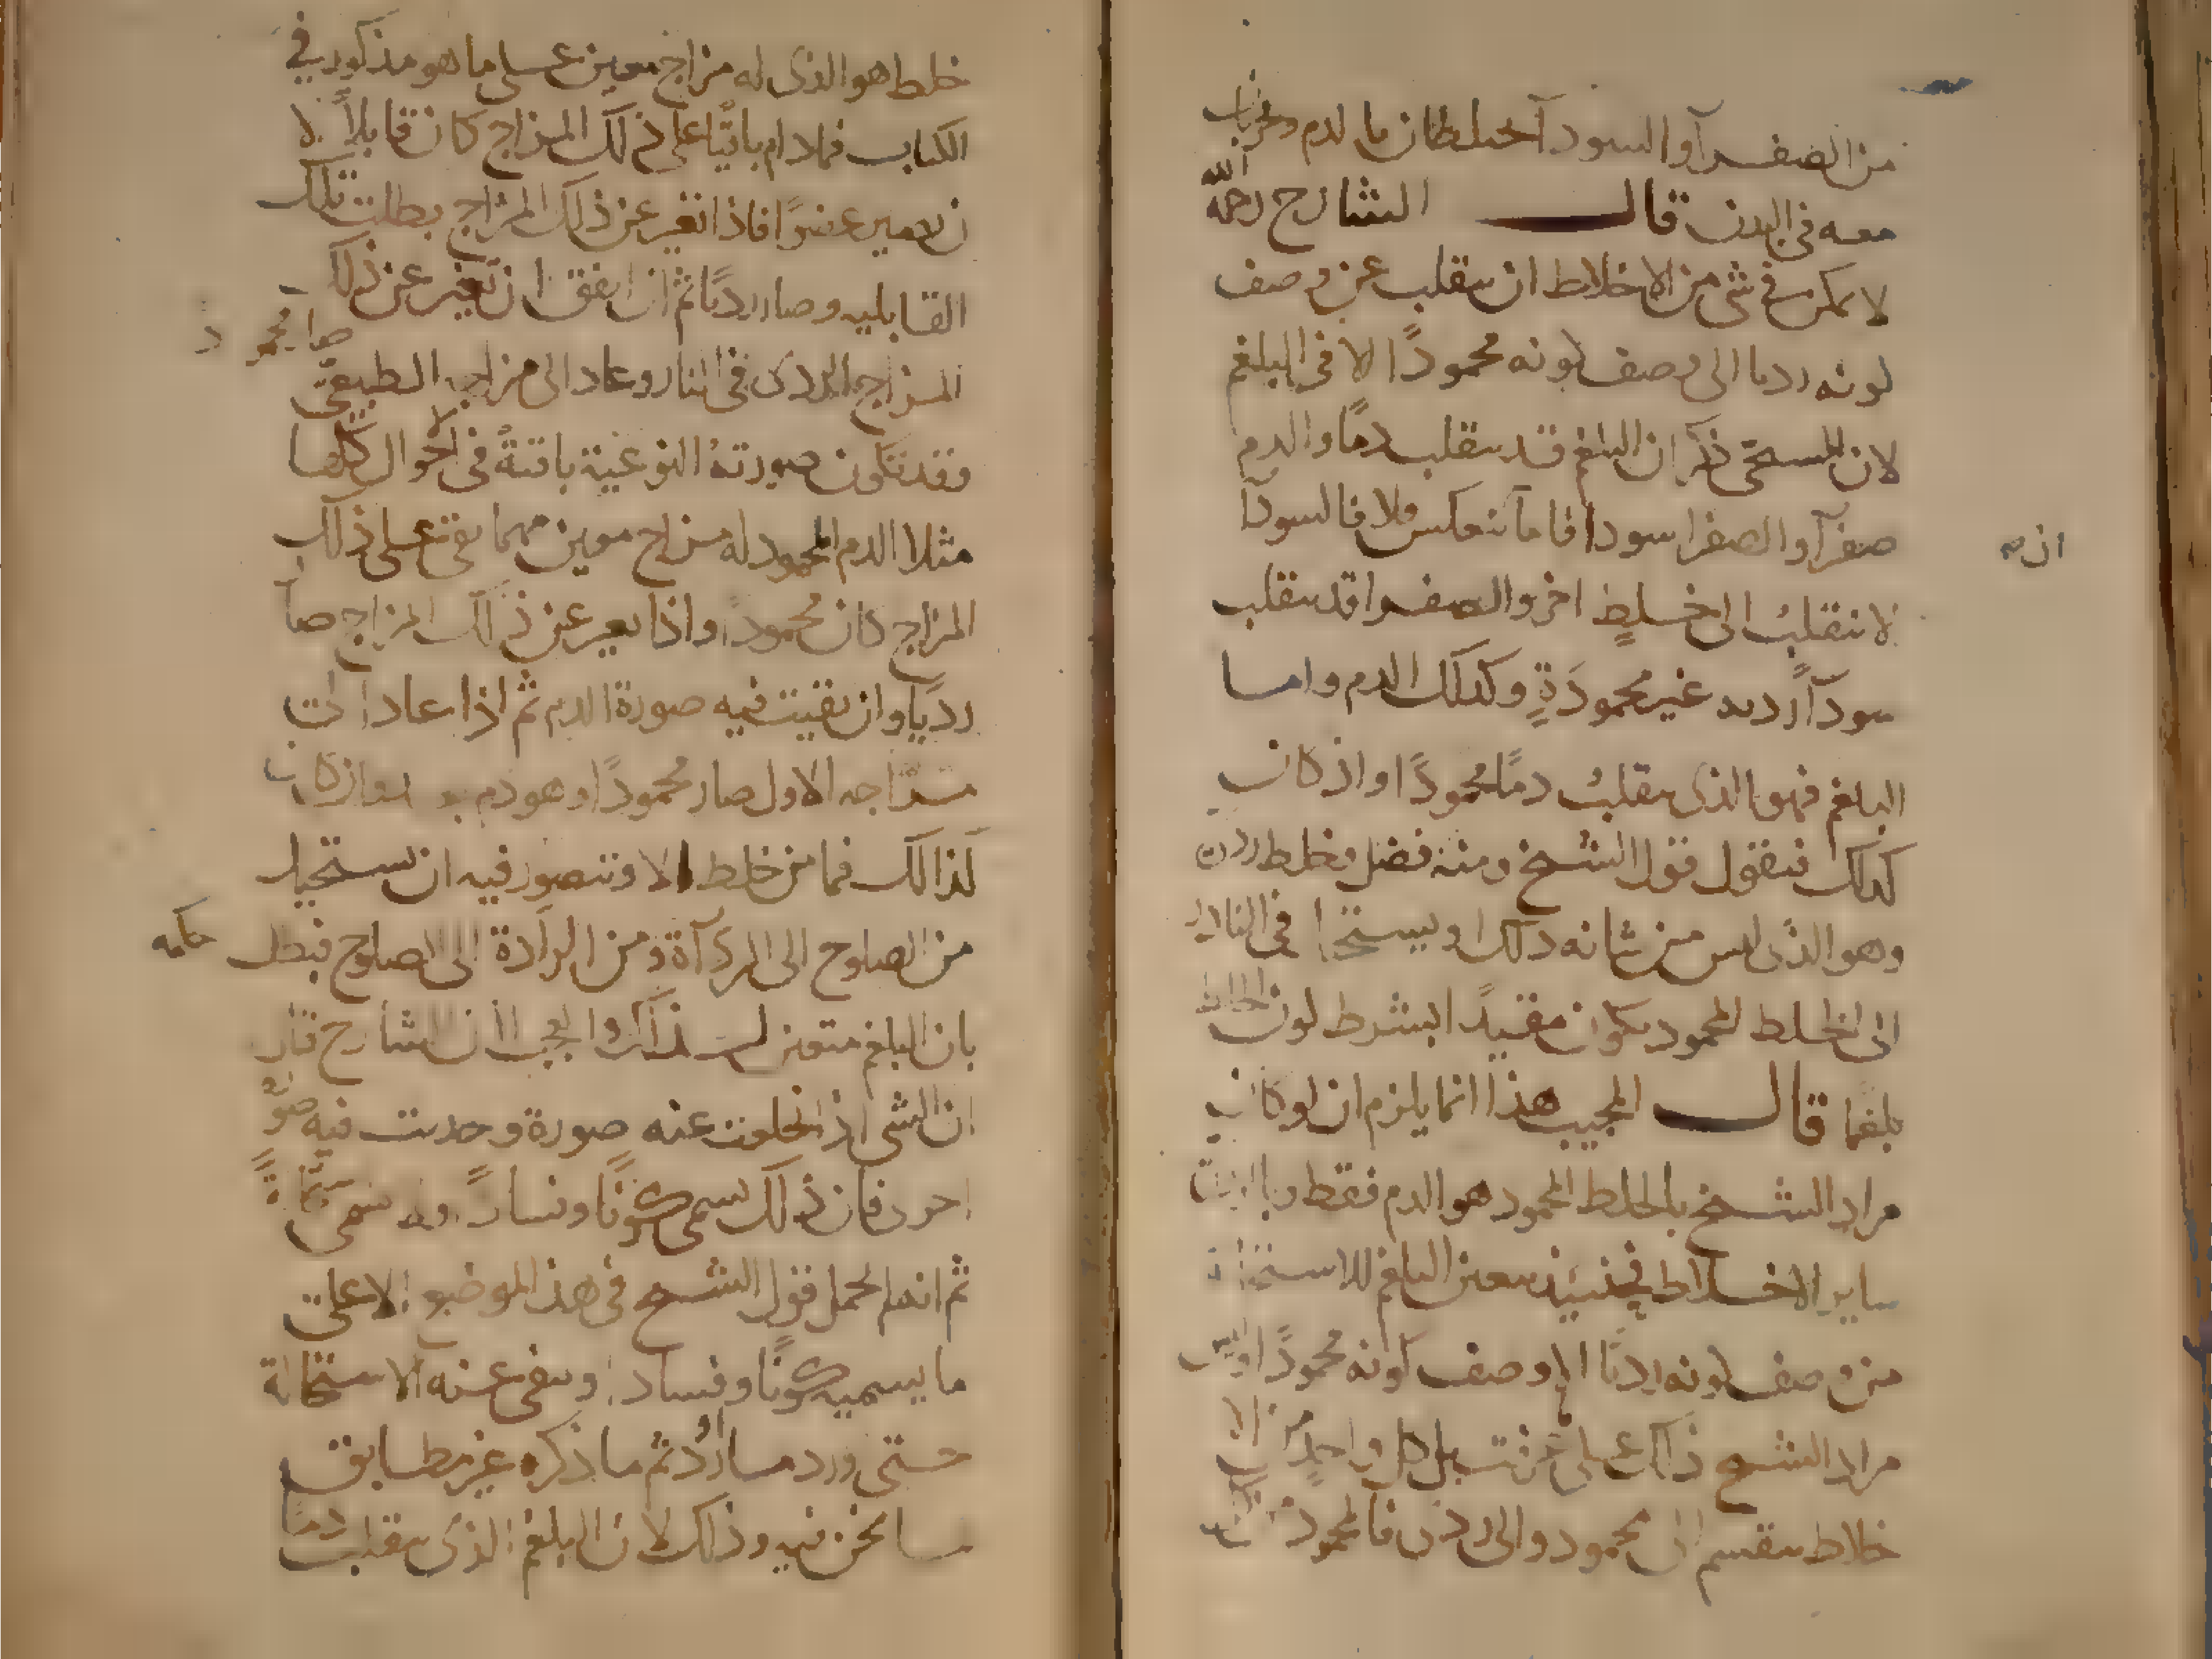 من الصفرآ والسودآ تختلطان بالدم وتخرجان
معه فى البدن قال الشارح رحمه الله
لا يمكن فى شى من الاخلاط ان ينقلب عن وصف
كونه رديا الى وصف كونه محمودًا الا فى البلغم
لان المسيحى ذكر ان البلغم قد ينقلب دمًا والدم
صفرآ والصفرا سودا فاما ان ينعكس فلا فالسودآ
لا تنقلب الى خلطٍ اخر والصفرا قد تنقلب
سودآً رديه غير محمودَةٍ وكذلك الدم واما
البلغم فهو الذى ينقلب دمًا محمودًا واذ كان
كذلك فنقول قول الشيخ ومنه فضل وخلط ردى
وهو الذى ليس من شانه ذلك او يستحيل فى النادر
الى الخلط المحمود يكون مقيدًا بشرط كون الخلط
بلغما قال المجيب هذا انما يلزم ان لو كان
مراد الشيخ بالخلط المحمود هو الدم فقط دون
ساير الاخلاط فحينيذ يتعين البلغم للاستحالة
من وصف كونه رديًا الى وصف كونه محمودًا وليس
مراد الشيخ ذلك على بل كل واحدٍ من الا
خلاط ينقسم الى محمود والى ردى فالمحمود من
خلط هو الذى له مزاج معين على ما هو مذكور فى
الكتاب فمادام باقيًا على ذلك المزاج كان قابلاً لا
ن يصير عضوًا فاذا تغير عن ذلك المزاج بطلت تلك
القابليه وصار رديًا ثم ان اتفق ان تغير عن ذلك
المزاج الردى فى النار وعاد الى مزاجه الطبيعى صار محمودا
وقد تكون صورته النوعية باقيةً فى الاحوال كلها
مثلا الدم المحمود له مزاج معين مهما بقى على ذلك
المزاج كان محمودا واذا تغير عن ذلك المزاج صا
ر رديًا وان بقيت فيه صورة الدم ثم اذا عاد الى
مزاجه الاول صار محمودًا وهو دم واذ كان
كذالك فما من خلط الا ويتصور فيه ان يستحيل
من الصلوح الى الردآة ومن الردآة الى الصلوح فبطل حكمه
بان البلغم متعين لذلك والعجب ان الشارح قال
ان الشى اذا انخلعت عنه صورة وحدثت فيه صورة
اخرى فان ذلك يسمى كونًا وفسادًا ولا يسمى استحالةً
ثم انه لم يحمل قول الشيخ فى هذا الموضع الا على
ما يسميه كونًا وفسادا وينفى عنه الاستحالة
حتى ورد ما اورد ثم ما ذكره غير مطابق
لما نحن فيه وذلك لان البلغم الذى ينقلب دمًا